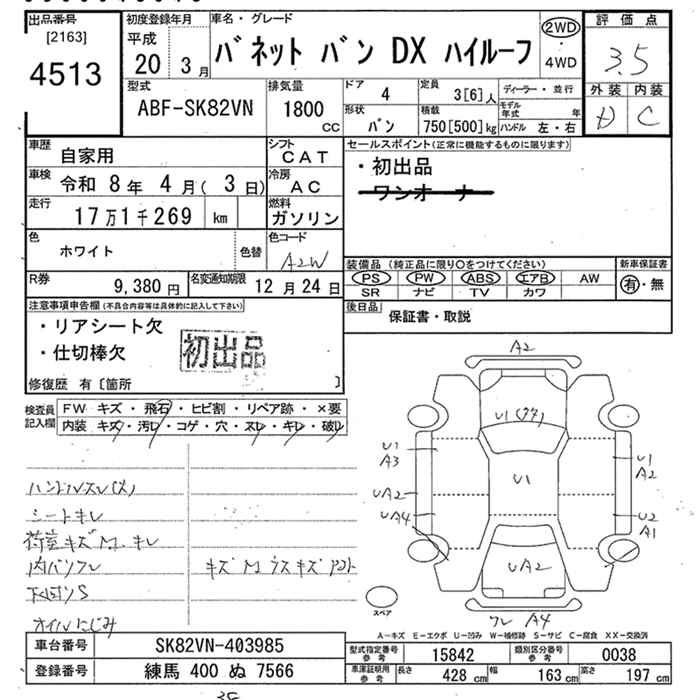 出品番号
[2163]
4513
初度登録年月
平成
20 3月
車名・グレード
バネット バン DX ハイルーフ
2WD
・
4WD
評価点
3.5
外装 内装
D C
型式
ABF-SK82VN
排気量
1800
CC
ドア
4
定員
3[6]人
ディーラー・並行
モデル
年式 年
形状
バン
積載
750[500]kg
ハンドル 左・右
車歴
自家用
シフト
CAT
車検
令和 8年 4月( 3日)
冷房
AC
走行
17万1千269 km
燃料
ガソリン
色
ホワイト
色替
色コード
A2W
R券
9,380円
名変通知期限
12月24日
セールスポイント(正常に機能するものに限ります)
・初出品
ワンオーナー
装備品 (純正品に限り○をつけてください)
PS PW ABS エアB AW
SR ナビ TV カワ
新車保証書
有・無
後日品
保証書・取説
注意事項申告欄(不具合内容等は具体的に記入して下さい)
・リアシート欠
・仕切棒欠
初出品
修復歴 有〔箇所 〕
検査員
記入欄
FW キズ・飛石・ヒビ割・リペア跡・×要
内装 キズ・汚レ・コゲ・穴・スレ・キレ・破レ
ハンドルスレ(大)
シートキレ
荷室キズM・キレ
内バリスレ
キズM ラスキズ
下回りS
オイルにじみ
A2
U1
U1
A3
U1
U1
A2
UA2
UA4
U2
A1
UA2
A4
スペア
A-キズ E-エクボ U-凹み W-補修跡 S-サビ C-腐食 XX-交換済
車台番号
SK82VN-403985
登録番号
練馬 400 ぬ 7566
型式指定番号
参考
15842
類別区分番号
参考
0038
車庫証明用
参考
長さ
428 cm
幅
163 cm
高さ
197 cm